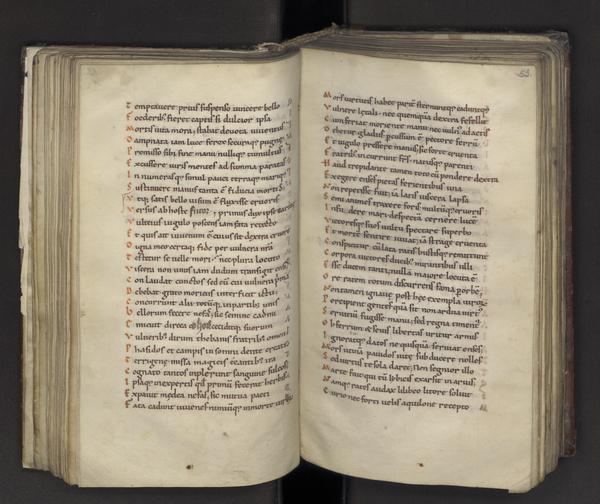 Temptauere prius suspenso uincere bello
Foederib; fieret captis si dulcior ipsa
Mortis uita mora. stabat deuota iuuentus
Damnata iam luce ferox securaq; pugnę
Promisso sibi fine manu nulliq; tumultus
Excussere uiris mentes ad summa paratas
Innumerasq; simul pauci terraq; mariq;
Sustinuere manus tanta ē fiducia mortis
Vtq; satis bello uisum ē fluxisse cruoris
Versus ab hoste furor; primus dux ipse
Vulteius iugulo poscens iam fata retecto
Ecquis ait iuuenum ē cuius sit dextra cruore
Digna meo certaq; fide per uulnera nrā
Testetur se uelle mori. nec plura locuto
Viscera non unus iam dudum transigit ensis
Conlaudat cunctos sed eū cui uulnera prima
Debebat grato moriens interficit ictu
Concurrunt alii totūq; in partibus unis
Bellorum fecere nefas; sic semine cadmi
Emicuit dircea cohors ceciditq; suorum
Vulneribus dirum thebanis fratribus omen
Phasidos et campis insomni dente creati
Terrigenę missa magicis ecantibus ira
Cognato tantos implerunt sanguine sulcos
Ipsaq; inexpertis qd primū fecerat herbis
Expauit medea nefas. sic mutua pacti
Fata cadunt iuuenes minimūq; in morte
53.
Mors uirtutis habet parit sternuntq; caduntq;
Vulnere letali nec quemquā dextera fefellit
Cum feriat moriente manu nec uuln; adactis
Debetur gladiis percussum ē pectore ferrū
Et iugulo pressere manus. sic sorte cruenta
Fratrib; incurrunt frs natusq; parenti
Haud trepidante tamen toto cū pondere dextra
Exegere enses pietas ferientibus una
Non repetisse fuit. iā laris uiscera lapsa
Semianimes traxere foris multūq; cruoris
Infudere mari. despecta cernere luce
Victoresq; suos uultu spectare superbo
Et mortē sentire iuuat. iā strage cruenta
Conspicitur cumulata ratis bustisq; remittunt
Corpora uictores ducib; mirantibus ulli
Esse ducem tanti. nulla maiore locuta ē
Ore ratem totum discurrens fama p orbē
Non tamen ignauę post hęc exempla uirorū
Percipient gentes quā sit non ardua uirt;
Seruitiū fugisse manu; sed regna timent
Ob ferrum & seuis libertas uritur armis
Ignoratq; datos ne quisquā seruiat enses
Mors utinā pauidos uitę subducere nolles
Sed uirtus te sola daret; non segnior illo
Marte fuit qui tū libicis exarsit in aruis
Namq; rates audax lilibeo litore soluit
Curio nec forti uelis aquilone recepto